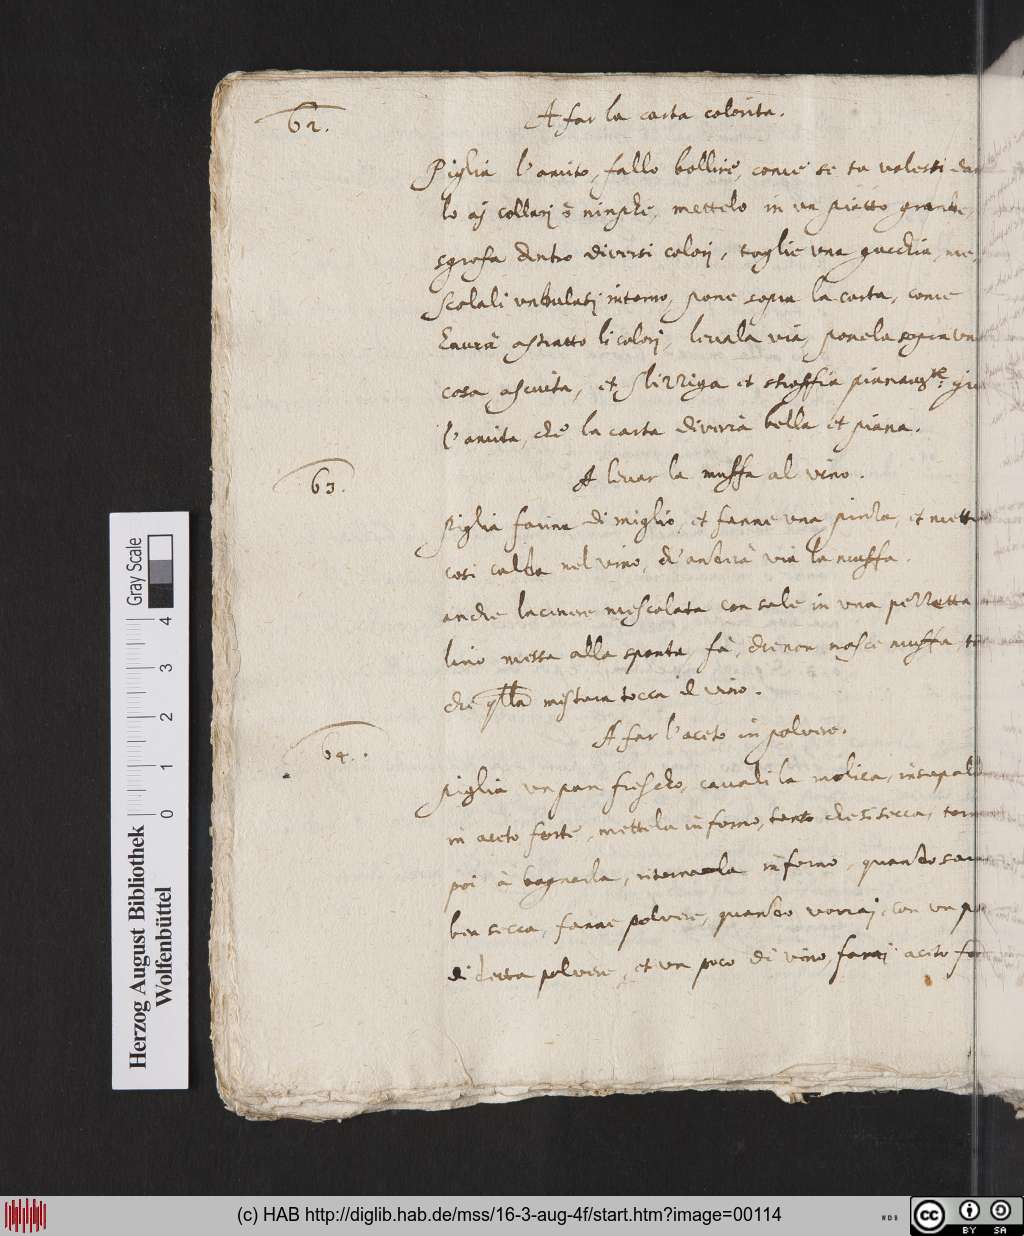 62.
A far la carta colorita.
Piglia l'amito, fallo bollire, come se tu volessi dar
lo aj collarj ò ninphe, mettelo in un piatto grande,
sgrofa dentro diversi colorj, toglie una gucchia, me
scolali undulatj intorno, pone sopra la carta, come
haurà astratto li colorj, levala via, ponela sopra un
cosa asciutta, et et stroffia pianamte.
l'amita, che la carta diverrà bella et piana.
63.
A levar la muffa al vino.
Piglia farina di miglio, et fanne una pinza, et mett
cosi calda nel vino, ch'anderà via la muffa.
anche la cenere mescolata con sale in una pezzetta
lino messa alla sponta fà, che non nasce muffa,
che qlla mistura tocca il vino.
64.
A far l'aceto in polvere.
piglia un pan frescho, cavali la molica, insupal
in aceto forte, mettela in forno, tanto che si secca, torn
poi à bagnarla, ritornarla in forno, quando sar
ben secca, fanne polvere, quando vorraj, con un po
di detta polvere, et un poco di vino, faraj aceto fo
Herzog August Bibliothek
Wolfenbüttel
0 1 2 3 4
Gray Scale
(c) HAB http://diglib.hab.de/mss/16-3-aug-4f/start.htm?image=00114
WDB
cc
BY SA